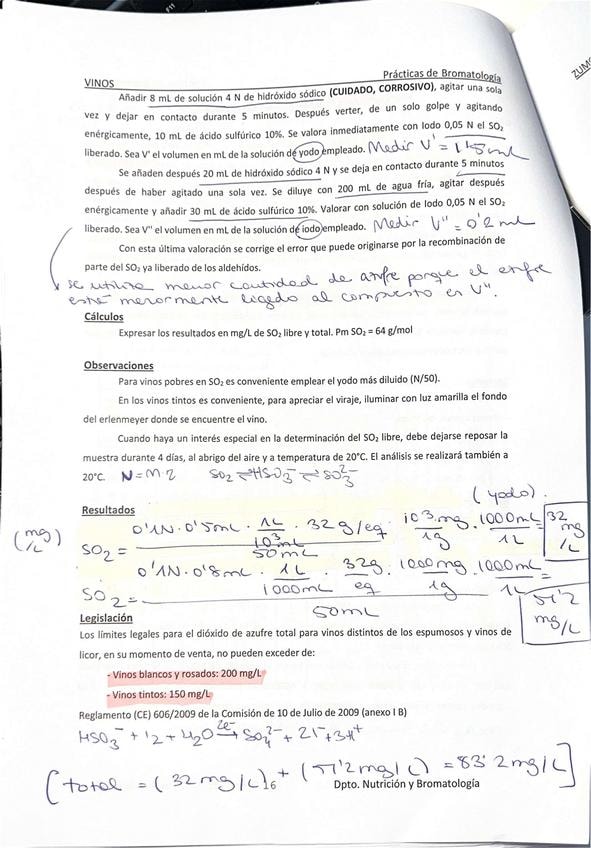 ZUMO
Prácticas de Bromatología
VINOS
Añadir 8 mL de solución 4 N de hidróxido sódico (CUIDADO, CORROSIVO), agitar una sola
vez y dejar en contacto durante 5 minutos. Después verter, de un solo golpe y agitando
enérgicamente, 10 mL de ácido sulfúrico 10%. Se valora inmediatamente con Iodo 0,05 N el SO₂
liberado. Sea V' el volumen en mL de la solución de yodo empleado. Medir V' = 1'5 mL
Se añaden después 20 mL de hidróxido sódico 4 N y se deja en contacto durante 5 minutos
después de haber agitado una sola vez. Se diluye con 200 mL de agua fría, agitar después
enérgicamente y añadir 30 mL de ácido sulfúrico 10%. Valorar con solución de Iodo 0,05 N el SO₂
liberado. Sea V'' el volumen en mL de la solución de iodo empleado. Medir V'' = 0'2 mL
Con esta última valoración se corrige el error que puede originarse por la recombinación de
parte del SO₂ ya liberado de los aldehídos.
se utiliza menor cantidad de azufre porque el azufre
está menormente ligado al compuesto en V''.
Cálculos
Expresar los resultados en mg/L de SO₂ libre y total. Pm SO₂ = 64 g/mol
Observaciones
Para vinos pobres en SO₂ es conveniente emplear el yodo más diluido (N/50).
En los vinos tintos es conveniente, para apreciar el viraje, iluminar con luz amarilla el fondo
del erlenmeyer donde se encuentre el vino.
Cuando haya un interés especial en la determinación del SO₂ libre, debe dejarse reposar la
muestra durante 4 días, al abrigo del aire y a temperatura de 20°C. El análisis se realizará también a
20°C. N = M·2 SO₂ ⇌ HSO₃⁻ ⇌ SO₃²⁻
(yodo).
Resultados
(mg/L) SO₂ = 0'1N · 0'5mL · 1L/10³mL · 32 g/eq / 50mL · 10³ mg/1g · 1000mL/1L = 32 mg/L
SO₂ = 0'1N · 0'8mL · 1L/1000mL · 32g/eq · 1000mg/1g · 1000mL/1L / 50mL = 51'2 mg/L
Legislación
Los límites legales para el dióxido de azufre total para vinos distintos de los espumosos y vinos de
licor, en su momento de venta, no pueden exceder de:
- Vinos blancos y rosados: 200 mg/L
- Vinos tintos: 150 mg/L
Reglamento (CE) 606/2009 de la Comisión de 10 de Julio de 2009 (anexo I B)
HSO₃⁻ + I₂ + H₂O 2e⁻→ SO₄²⁻ + 2I⁻ + 3H⁺
[total = (32 mg/L) + (51'2 mg/L) = 83'2 mg/L]
6
Dpto. Nutrición y Bromatología